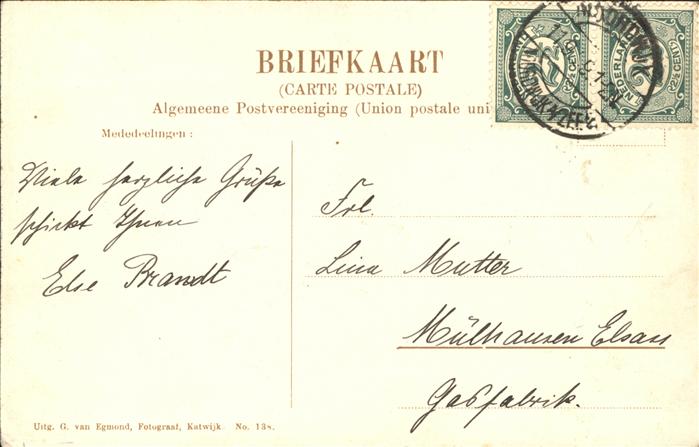 BRIEFKAART
(CARTE POSTALE)
Algemeene Postvereeniging (Union postale uni
Mededeelingen :
Viele herzliche Grüße
schickt Ihnen
Else Brandt
Frl.
Lina Mutter
Mülhausen Elsass
Gasfabrik.
Uitg. G. van Egmond, Fotograaf, Katwijk No. 138.
NEDERLAND
2½ CENT
NEDERLAND
2½ CENT